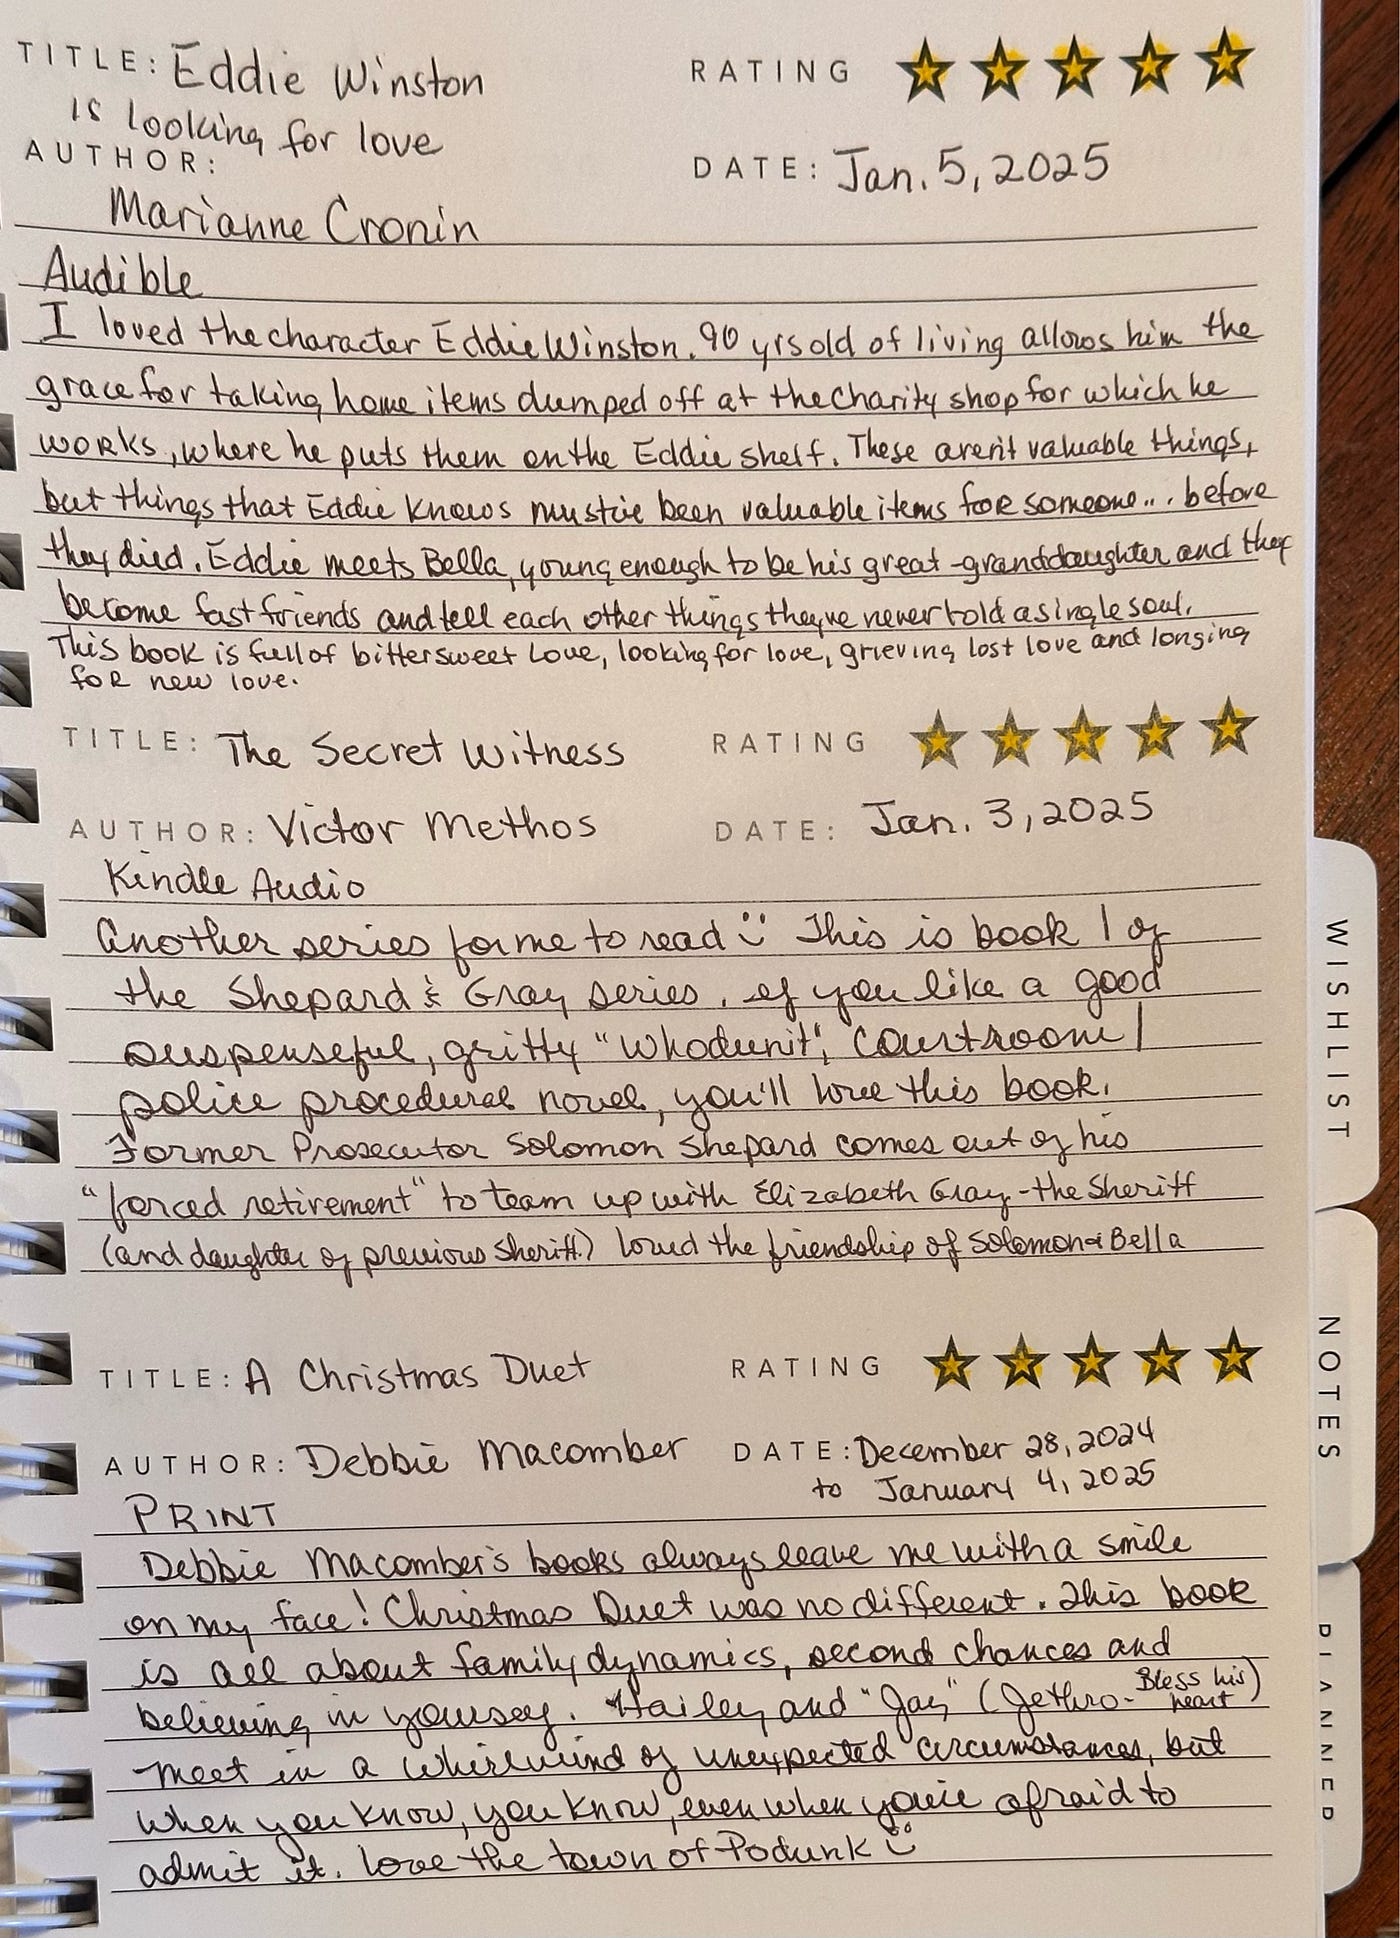 TITLE: Eddie Winston
is looking for love
RATING
AUTHOR:
DATE: Jan. 5, 2025
Marianne Cronin
Audible
I loved the character Eddie Winston. 90 yrs old of living allows him the
grace for taking home items dumped off at the Charity shop for which he
works, where he puts them on the Eddie shelf. These aren't valuable things,
but things that Eddie knows must've been valuable items for someone... before
they died. Eddie meets Bella, young enough to be his great-granddaughter and they
become fast friends and tell each other things they've never told a single soul.
This book is full of bittersweet love, looking for love, grieving lost love and longing
for new love.
TITLE: The Secret Witness
RATING
AUTHOR: Victor Methos
DATE: Jan. 3, 2025
Kindle Audio
Another series for me to read This is book 1 of
the Shepard & Gray series. If you like a good
suspenseful, gritty "Whodunit", courtroom/
police procedural novel, you'll love this book.
Former Prosecutor Solomon Shepard comes out of his
"forced retirement" to team up with Elizabeth Gray - the Sheriff
(and daughter of previous Sheriff.) loved the friendship of Solomon & Bella
TITLE: A Christmas Duet
RATING
AUTHOR: Debbie Macomber
DATE: December 28, 2024
to January 4, 2025
PRINT
Debbie Macomber's books always leave me with a smile
on my face! Christmas Duet was no different. This book
is all about family dynamics, second chances and
believing in yourself. Hailey and "Jay" (Jethro - Bless his heart)
meet in a whirlwind of unexpected circumstances, but
when you know, you know, even when you're afraid to
admit it. Love the town of Podunk
WISHLIST
NOTES
PLANNER